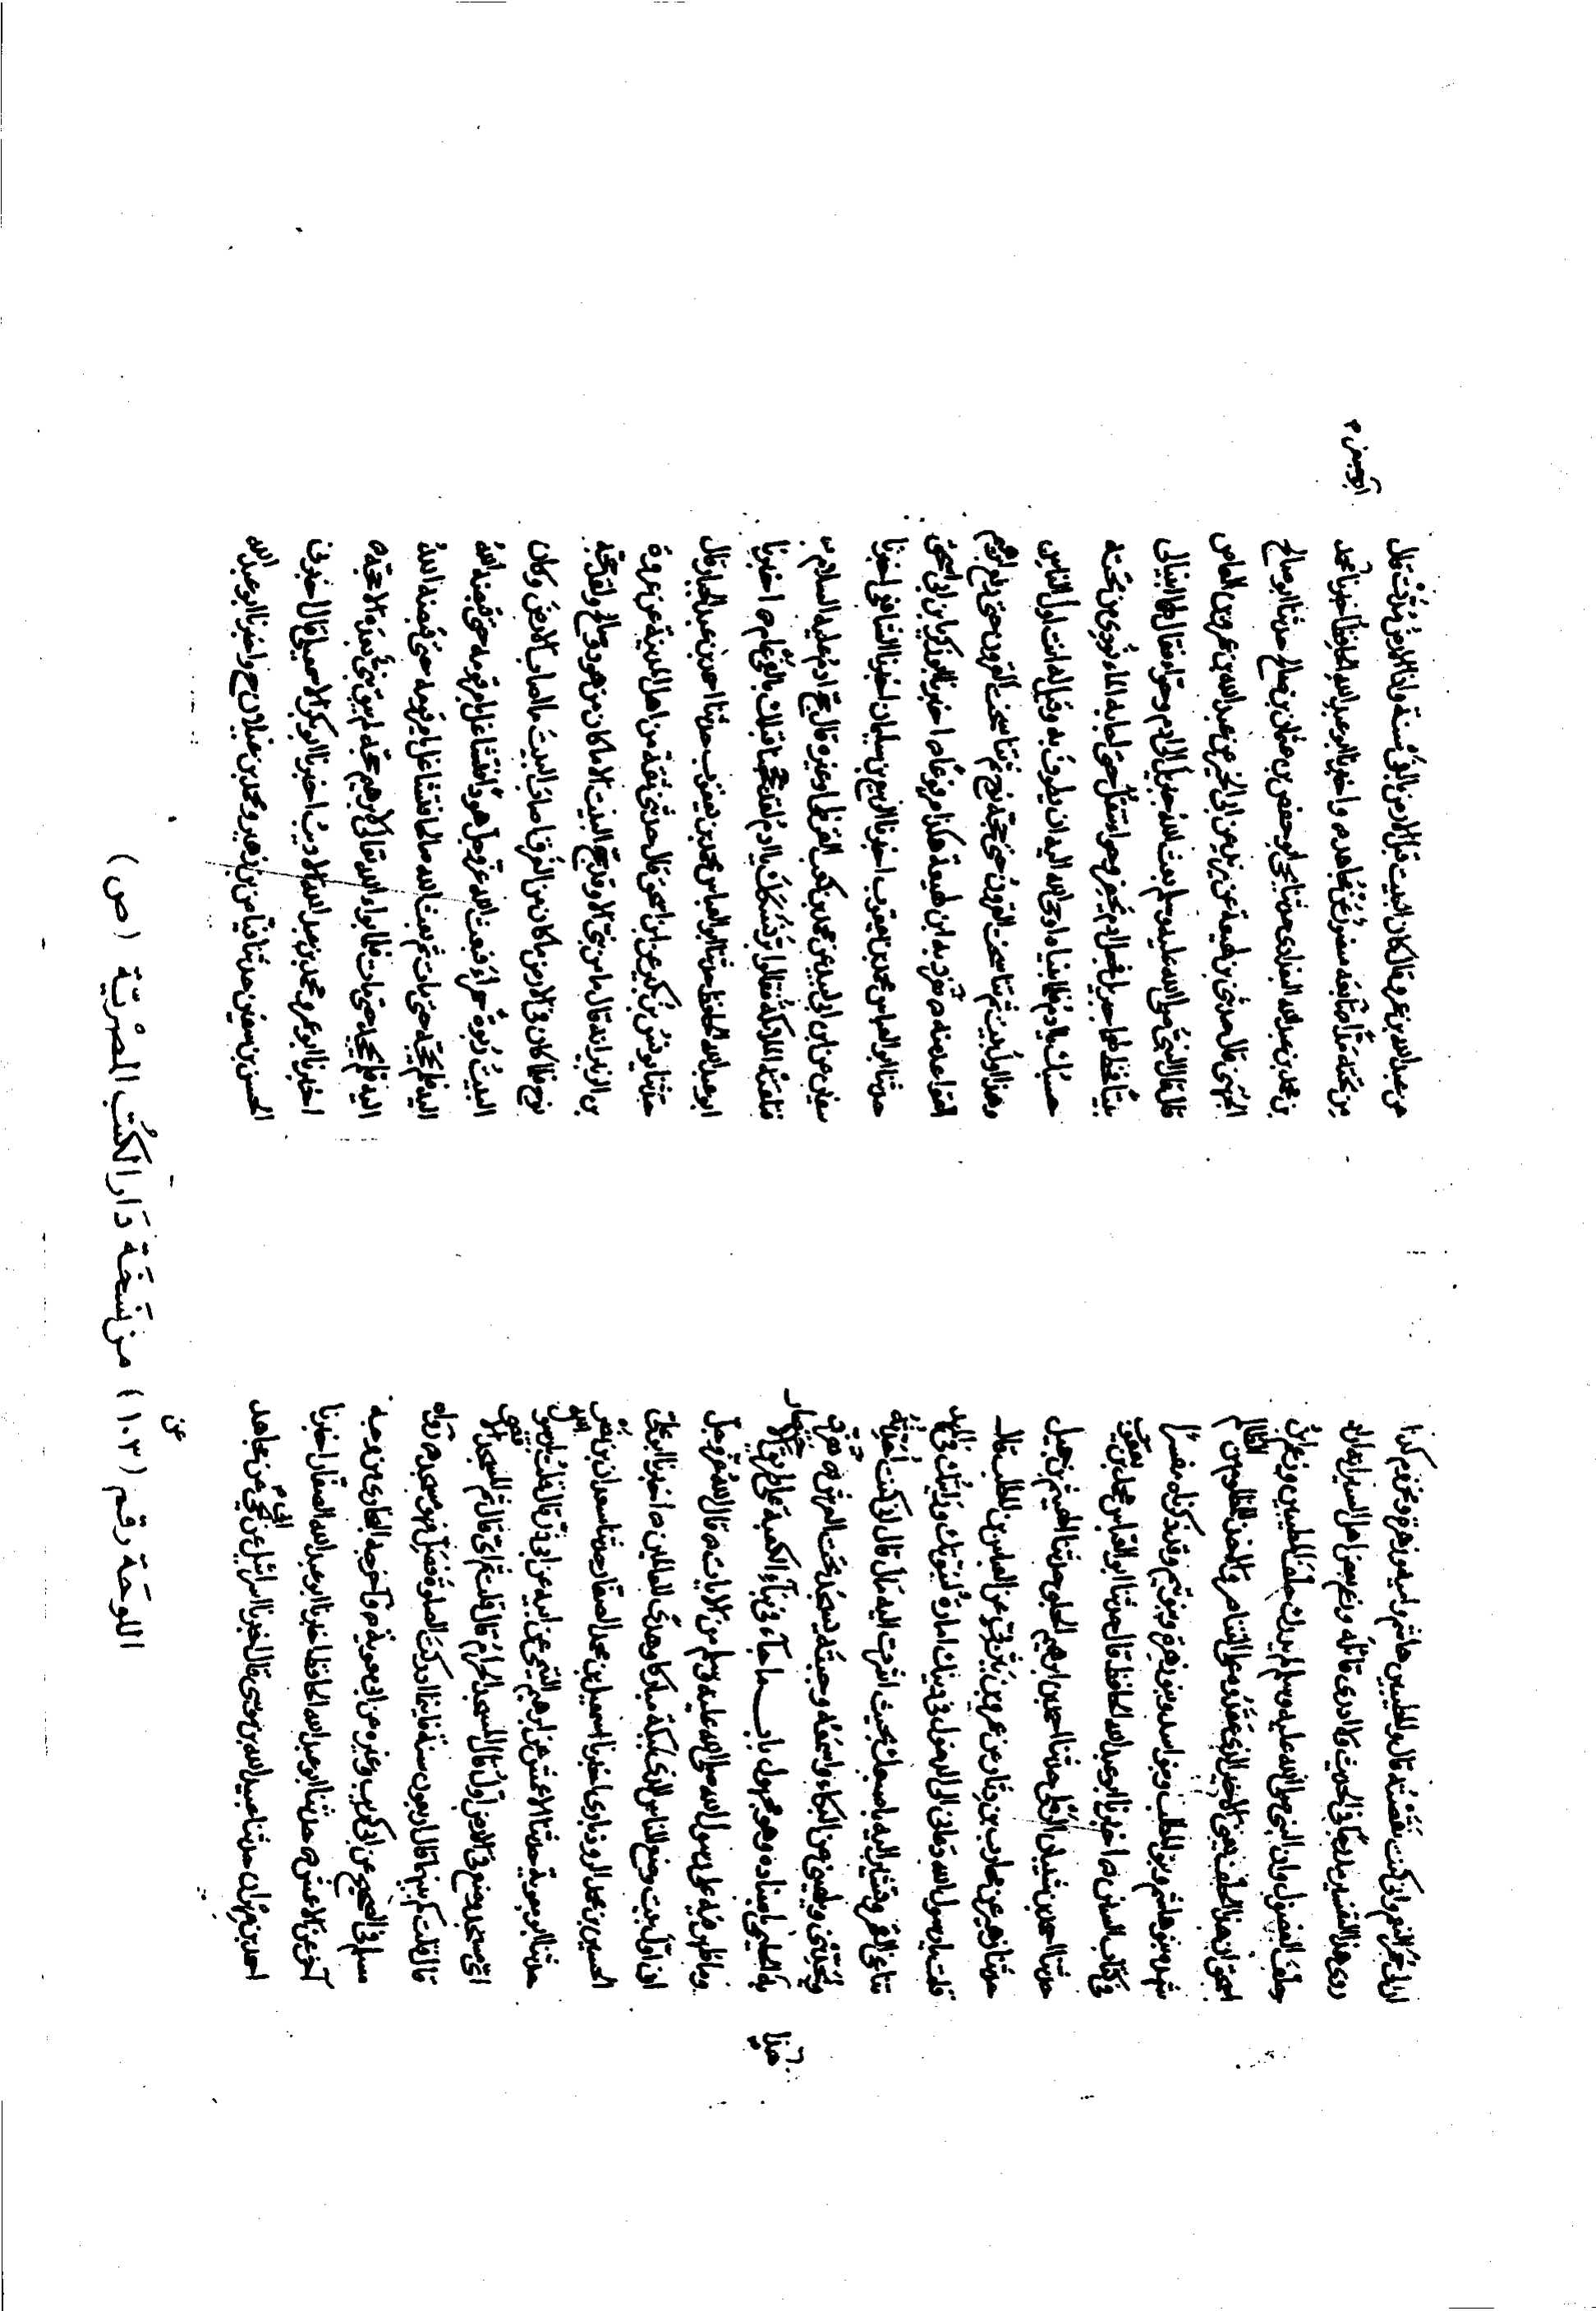 ان لي حمر النعم واني كنت نقضته قال والمطيبين هاشم وامية وزهرة ومخزوم كذا
روى هذا التفسير مدرجا في الحديث ولا ادري قائله وزعم بعض اهل السير انه اراد
حلف الفضول وان النبي صلى الله عليه وسلم لم يدرك حلف المطيبين وزعم ابن
اسحق ان هذا الحلف يعني الاخير الذي عقدوه على التناصر والاخذ للمظلوم من الظالم
شهده بنو هاشم وبنو المطلب وبنو اسد وبنو زهرة وبنو تيم وقد ذكرناه مفسرا
في كتاب السنن ه اخبرنا ابو عبد الله الحافظ قال حدثنا ابو العباس محمد بن يعقوب
حدثنا احمد بن شيبان الرملي حدثنا احمد بن ابرهيم الحلبي حدثنا الهيثم بن جميل
حدثنا زهير عن محارب بن دثار عن عمرو بن يثربي عن العباس بن المطلب قال
قلت يا رسول الله دعاني الى الدخول في دينك امارة لنبوتك رايتك في المهد
تناغي القمر وتشير اليه باصبعك فحيث اشرت اليه مال قال اني كنت احدثه
ويحدثني ويلهيني عن البكاء واسمع وجبته يسجد تحت العرش ه تفرد
به الحلبي باسناده وهو مجهول باب ما جاء في بناء الكعبة على طريق الاختصار
وما ظهر فيه على رسول الله صلى الله عليه وسلم من الايات ه قال الله عز وجل
ان اول بيت وضع للناس للذي ببكة مباركا وهدى للعالمين ه اخبرنا ابو علي
الحسين بن محمد الروذباري اخبرنا اسمعيل بن محمد الصفار حدثنا سعدان بن نصر
حدثنا ابو معوية حدثنا الاعمش عن ابرهيم التيمي عن ابيه عن ابي ذر قال قلت يا رسول الله
اي مسجد وضع في الارض اول قال المسجد الحرام قال قلت ثم اي قال ثم المسجد الاقصى
قال قلت كم بينهما قال اربعون سنة فاينما ادركت الصلوة فصل فهو مسجد ه رواه
مسلم في الصحيح عن ابي كريب وغيره عن ابي معوية ه واخرجه البخاري من وجه
اخر عن الاعمش ه حدثنا ابو عبد الله الحافظ اخبرنا ابو عبد الله الصفار اخبرنا
احمد بن مهران حدثنا عبيد الله بن موسى قال اخبرنا اسرائيل عن ابي يحيى عن مجاهد
عن
عن عبد الله بن عمرو قال كان البيت قبل الارض بالفي سنة واذا الارض مدت قال
من تحته مدا ه تابعه منصور عن مجاهد ه واخبرنا ابو عبد الله الحافظ اخبرنا ابو جعفر محمد
بن محمد بن عبد الله البغدادي حدثنا يحيى بن عثمان بن صالح حدثنا ابو صالح
الجهني قال حدثني ابن لهيعة عن يزيد عن ابي الخير عن عبد الله بن عمرو بن العاص
قال قال النبي صلى الله عليه وسلم بعث الله جبريل الى ادم وحواء فقال لهما ابنيا لي
بيتا فخط لهما جبريل فجعل ادم يحفر وحواء تنقل حتى اجابه الماء نودي من تحته
حسبك يا ادم فلما بنياه اوحى الله اليه ان يطوف به وقيل له انت اول الناس
وهذا اول بيت ثم تناسخت القرون حتى حجه نوح ثم تناسخت القرون حتى رفع ابرهيم
القواعد منه ه تفرد به ابن لهيعة هكذا مرفوعا ه اخبرنا ابو زكريا بن ابي اسحق
حدثنا ابو العباس محمد بن يعقوب اخبرنا الربيع بن سليمان اخبرنا الشافعي اخبرنا
سفين عن ابن ابي لبيد عن محمد بن كعب القرظي او غيره قال حج ادم عليه السلام
فلقيته الملائكة فقالوا بر نسكك يا ادم لقد حججنا قبلك بالفي عام ه اخبرنا
ابو عبد الله الحافظ حدثنا ابو العباس محمد بن يعقوب حدثنا احمد بن عبد الجبار قال
حدثنا يونس بن بكير عن ابن اسحق قال حدثني ثقة من اهل المدينة عن عروة
بن الزبير انه قال ما من نبي الا وقد حج البيت الا ما كان من هود وصالح ولقد حجه
نوح فلما كان في الارض ما كان من الغرق اصاب البيت ما اصاب الارض وكان
البيت ربوة حمراء فبعث الله عز وجل هودا فتشاغل بامر قومه حتى قبضه الله
اليه فلم يحجه حتى مات ثم بعث الله صالحا فتشاغل بامر قومه حتى قبضه الله
اليه فلم يحجه حتى مات فلما بواه الله تعالى لابرهيم حجه لم يبق نبي بعده الا حجه ه
اخبرنا ابو عمرو محمد بن عبد الله الاديب اخبرنا ابو بكر الاسمعيلي قال اخبرني
الحسن بن سفين حدثنا فياض بن زهير ومحمود بن غيلان ح واخبرنا ابو عبد الله
اللوحة رقم (١٠٣) من نسخة دار الكتب المصرية (ص)